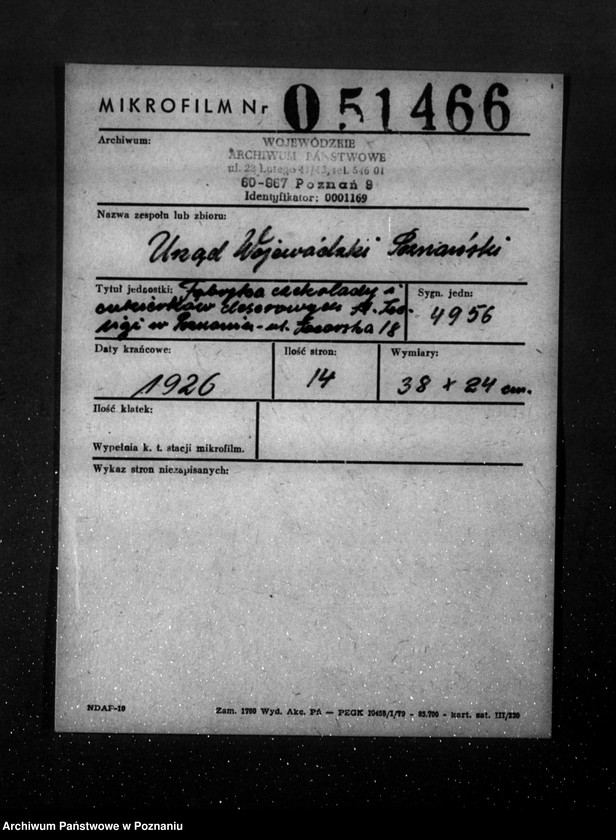 MIKROFILM Nr 051466
Archiwum:
WOJEWÓDZKIE
ARCHIWUM PAŃSTWOWE
ul. 23 Lutego 41/43, tel. 546 01
60-967 Poznań 9
Identyfikator: 0001169
Nazwa zespołu lub zbioru:
Urząd Wojewódzki Poznański
Tytuł jednostki: Fabryka czekolady i
cukierków deserowych A.
w Poznaniu - ul. 18
Sygn. jedn:
4956
Daty krańcowe:
1926
Ilość stron:
14
Wymiary:
38 x 24 cm.
Ilość klatek:
Wypełnia k. t. stacji mikrofilm.
Wykaz stron niezapisanych:
NDAP-10
Zam. 1760 Wyd. Akc. PA — PZGK 10458/I/79 - 83.700 - kart. sat. III/220
Archiwum Państwowe w Poznaniu